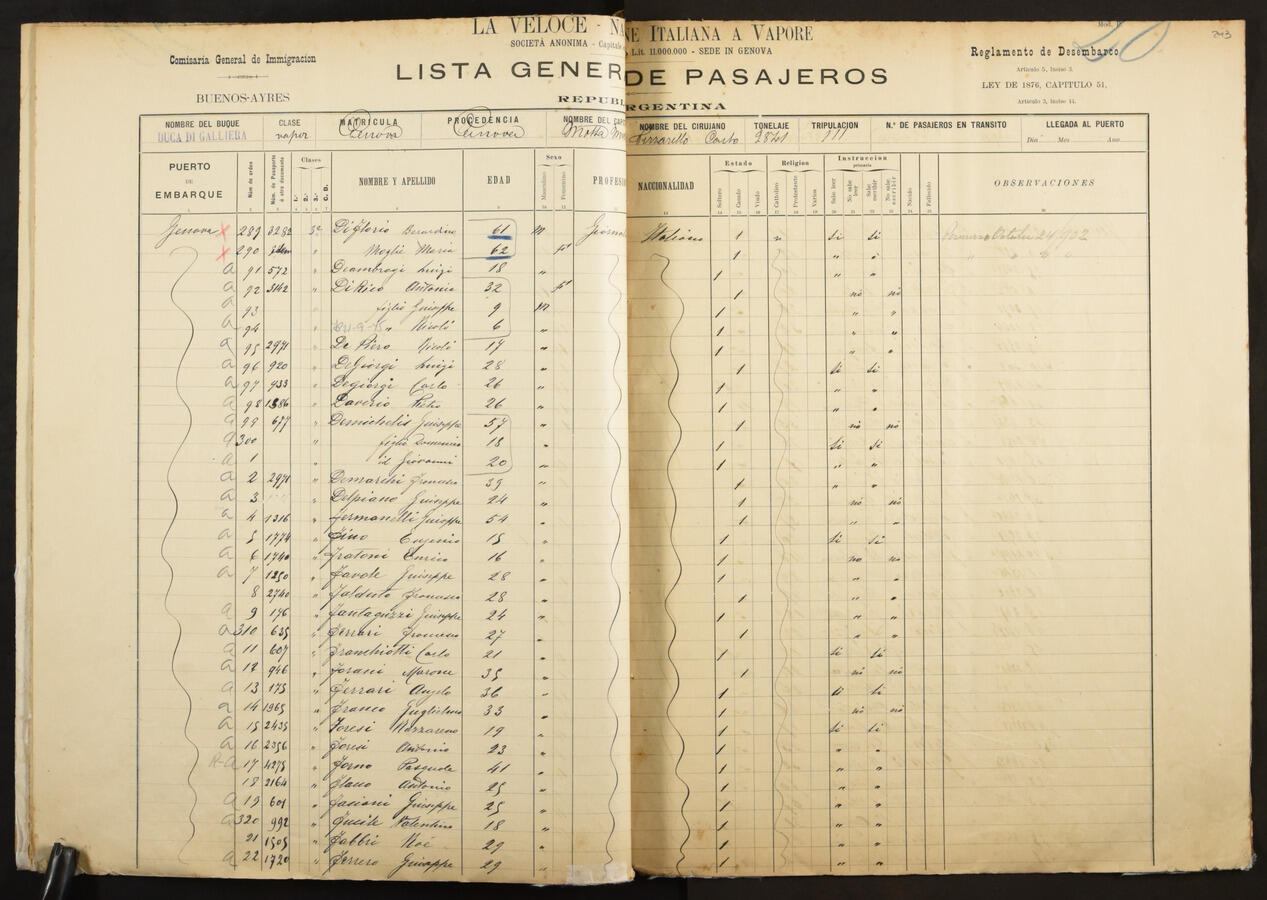 LA VELOCE - NA NE ITALIANA A VAPORE
SOCIETÀ ANONIMA - Capitale Lit. 11.000.000 - SEDE IN GENOVA
Mod.
20
243
Comisaria General de Immigracion
BUENOS-AYRES
LISTA GENER DE PASAJEROS
REPUBL RGENTINA
Reglamento de Desembarco
Articulo 5, Inciso 3.
LEY DE 1876, CAPITULO 51,
Articulo 3, Inciso 14.
NOMBRE DEL BUQUE CLASE MATRICULA PROCEDENCIA NOMBRE DEL CAP NOMBRE DEL CIRUJANO TONELAJE TRIPULACION N.º DE PASAJEROS EN TRANSITO LLEGADA AL PUERTO
DUCA DI GALLIERA vapor Genova Genova Motta Carlo 111 Dia Mes Ano
PUERTO DE EMBARQUE Núm de orden Núm. de Pasaporte ú otro documento Clases 1.ª 2.ª 3.ª C. D. NOMBRE Y APELLIDO EDAD Sexo Masculino Femenino PROFESIO NACCIONALIDAD Estado Soltero Casado Viudo Religion Catolico Protestante Varios Instruccion primaria Sabe leer No sabe leer Sabe escribir No sabe escribir Nacido Fallecido OBSERVACIONES
Genova x 289 3282 3ª Di Glorio Berardino 61 m Giornal Italiano / " si si
x 290 idem " Moglie Maria 62 f / " "
a 91 572 " Deambrogi Luigi 18 " / " "
a 92 3142 " Di Rico Antonia 32 f / no no
a 93 figlio Giuseppe 9 m / " "
a 94 " " Nicola 6 " / " "
a 95 2971 " De Piero Nicolò 17 " / " "
a 96 920 " De Giorgi Luigi 28 " / si si
a 97 933 " Degiorgi Carlo 26 " / " "
a 98 1586 " Daverio Pietro 26 " / " "
a 99 677 " Demichelis Giuseppe 57 " / no no
a 300 " figlio Domenico 18 / si si
a 1 " id Giovanni 20 " / " "
a 2 2971 " Demarchi Francesco 39 " / " "
a 3 " Delpiano Giuseppe 24 " / no no
a 4 1316 " Fermanelli Giuseppe 54 " / " "
a 5 1774 " Fino Eugenio 15 " / si si
a 6 1740 " Fratoni Enrico 16 " / no no
a 7 1250 " Favole Giuseppe 28 " / " "
8 2740 " Falduto Francesco 28 " / " "
a 9 176 " Fantaguzzi Giuseppe 24 " / " "
a 310 635 " Ferrari Francesco 27 " / " "
a 11 607 " Franchiotti Carlo 21 " / si si
a 12 946 " Forani Marone 35 " / no no
a 13 175 " Ferrari Angelo 36 " / si si
a 14 1965 " Franco Guglielmo 33 " / no no
a 15 2435 " Foresi Nazzareno 19 " / si si
a 16 2356 " Foresi Antonio 23 " / " "
R-a 17 4275 " Forno Pasquale 41 " / " "
18 2164 " Flauo Antonio 25 " / " "
a 19 601 " Fasioni Giuseppe 25 " / " "
a 320 992 " Fucile Valentino 18 " / " "
21 1505 " Fabbri Noè 29 " / " "
a 22 1720 " Ferrero Giuseppe 29 " / " "